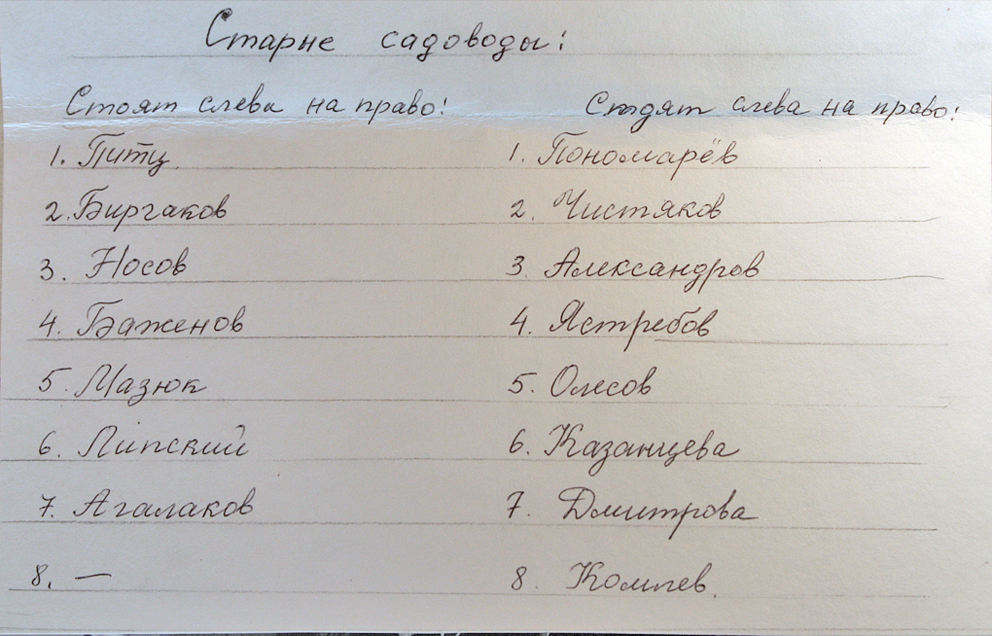 Старие садоводы:
Стоят слева на право:
1. Питц
2. Биргаков
3. Носов
4. Баженов
5. Мазюк
6. Липский
7. Агалаков
8. —
Сидят слева на право:
1. Пономарёв
2. Чистяков
3. Александров
4. Ястребов
5. Олесов
6. Казанцева
7. Дмитрова
8. Комлев.